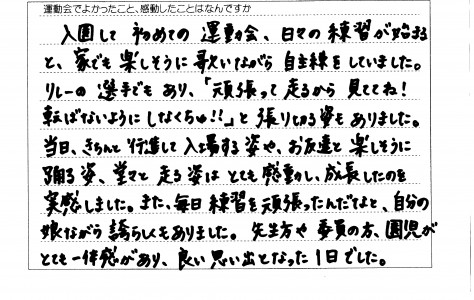 運動会でよかったこと、感動したことはなんですか
入園して初めての運動会、日々の練習が始まる
と、家でも楽しそうに歌いながら自主練をしていました。
リレーの選手でもあり、「頑張って走るから見ててね!
転ばないようにしなくちゅ!!」と張り切る姿もありました。
当日、きちんと行進して入場する姿や、お友達と楽しそうに
踊る姿、堂々と走る姿はとても感動し、成長したのを
実感しました。また、毎日練習を頑張ったんだなと、自分の
娘ながら誇らしくもありました。先生方や委員の方、園児が
とても一体感があり、良い思い出となった1日でした。